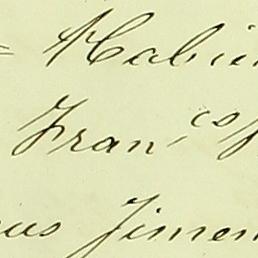 = Habien
Fran,co J
us Jimen